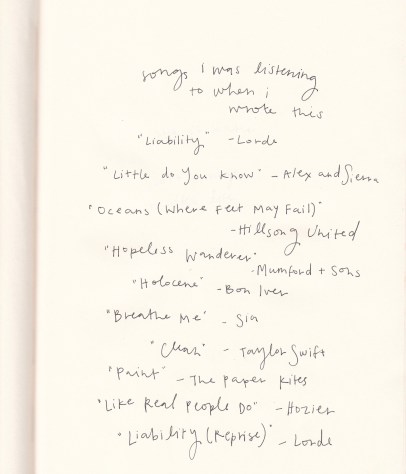 songs I was listening
to when i
wrote this
"Liability" - Lorde
"Little do You know" - Alex and Sierra
"Oceans (Where Feet May Fail)"
- Hillsong United
"Hopeless Wanderer"
- Mumford + Sons
"Holocene" - Bon Iver
"Breathe Me" - Sia
"Clean" - Taylor Swift
"Paint" - The Paper Kites
"Like Real People Do" - Hozier
"Liability (Reprise)" - Lorde